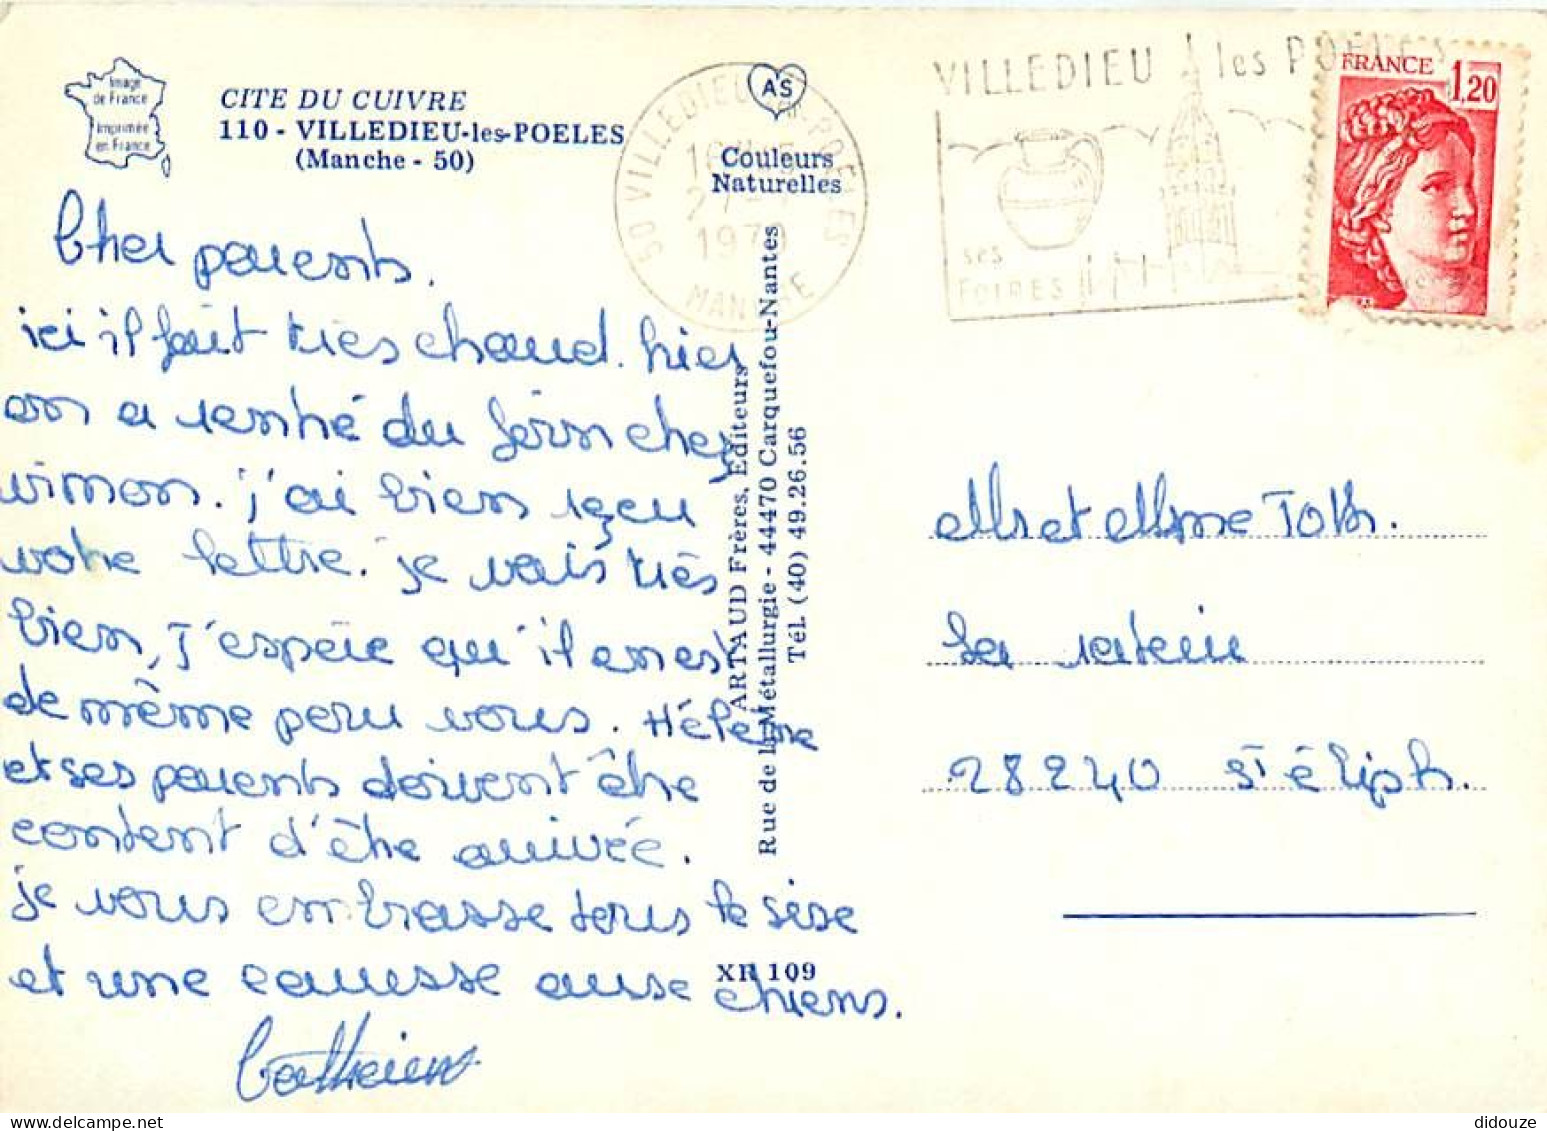 Image
de France
Imprimée
en France
CITE DU CUIVRE
110 - VILLEDIEU-les-POELES
(Manche - 50)
AS
Couleurs
Naturelles
50 VILLEDIEU LES POELES
1979
MANCHE
VILLEDIEU les POELES
ses
FOIRES
FRANCE 1,20
Cher parents.
ici il fait très chaud. hier
on a rentré du foin chez
vimon. j'ai bien reçu
votre lettre. je vais très
bien, J'espère qu'il en est
de même pour vous. Hélène
et ses parents doivent être
content d'être arrivée.
je vous embrasse tous le sise
et une caresse ause chiens.
ARTAUD Frères, Editeurs
Rue de la Métallurgie - 44470 Carquefou-Nantes
Tél. (40) 49.26.56
XR 109
Mr et Mme Toth.
La
28240 St éliph.
didouze